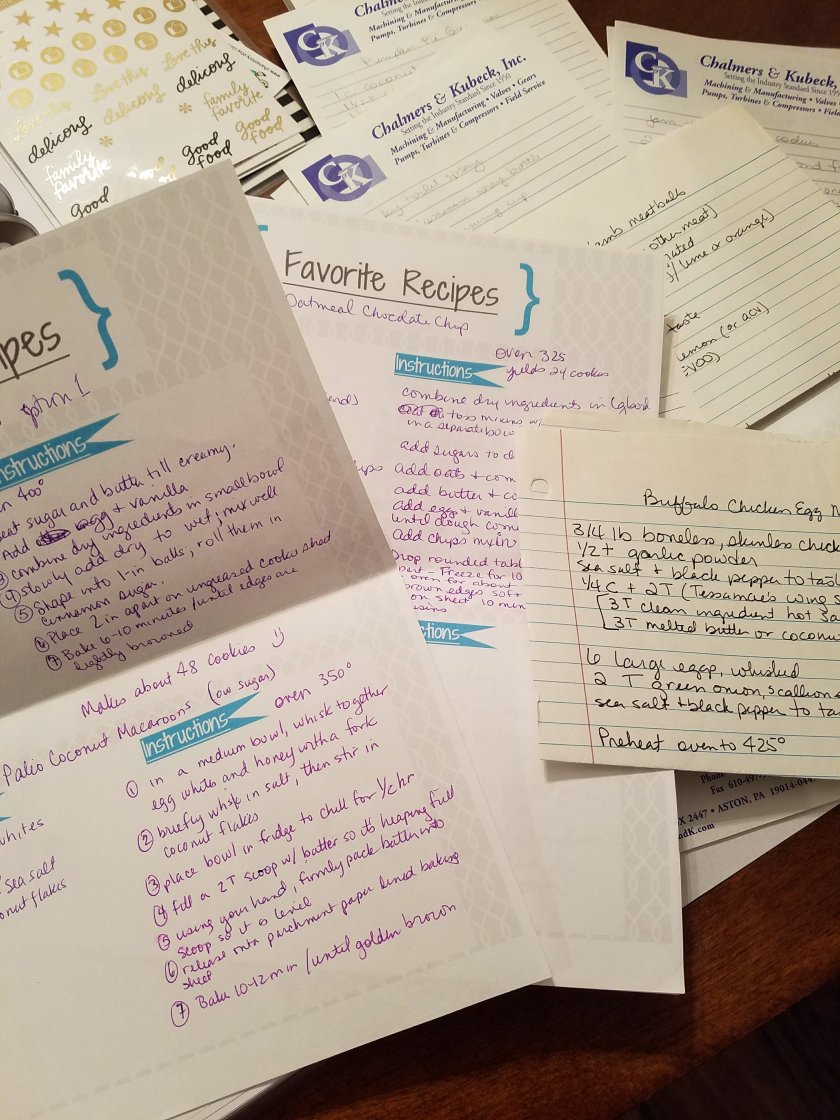 love this
delicious
love this
delicious
love this
family favorite
good food
delicious
family favorite
good food
good
good food
Chalmers & Kubeck, Inc.
Setting the Industry Standard Since 1950
Machining & Manufacturing • Valves • Gears
Pumps, Turbines & Compressors • Field Service
Chalmers & Kubeck, Inc.
Setting the Industry Standard Since 1950
Machining & Manufacturing • Valves • Gears
Pumps, Turbines & Compressors • Field Service
Chalmers & Kubeck,
Setting the Industry Standard Since 195
Machining & Manufacturing • Valves •
Pumps, Turbines & Compressors • Field
cookies
meatballs
other meat)
lime or orange)
taste
lemon (or acv)
EVOO)
pes }
option 1
Instructions
400°
eat sugar and butter till creamy.
Add egg + vanilla
③ combine dry ingredients in small bowl
④ slowly add dry to wet; mix well
⑤ Shape into 1-in balls, roll them in
cinnamon sugar.
⑥ Place 2 in apart on ungreased cookie sheet
⑦ Bake 6-10 minutes/until edges are
lightly browned
Makes about 48 cookies :)
Paleo Coconut Macaroons (low sugar)
Instructions
oven 350°
whites
sea salt
onut flakes
① in a medium bowl, whisk together
egg whites and honey with a fork
② briefly whisk in salt, then stir in
coconut flakes
③ place bowl in fridge to chill for ½hr
④ fill a 2T scoop w/ batter so its heaping full
⑤ using your hand, firmly pack batter into
scoop so it is level
⑥ release onto parchment paper lined baking
sheet
⑦ Bake 10-12 min/until golden brown
Favorite Recipes }
Oatmeal Chocolate Chip
oven 325
yields 24 cookies
Instructions
combine dry ingredients in
toss mixins w/
in a separate bow
add sugars to d
add oats + com
add butter + co
add egg + vanill
until dough come
Add chips mixin
Drop rounded tabl
Freeze for 10
oven for about
brown edges soft
on sheet 10 min
ctions
Buffalo Chicken Egg M
3/4 lb boneless, skinless chick
1/2 t garlic powder
sea salt + black pepper to tas
1/4 C + 2T (Tessamae's wing s
3T clean ingredient hot sa
3T melted butter or coconu
6 large eggs, whisked
2 T green onion, scallion
sea salt + black pepper to ta
Preheat oven to 425°
Phone
Fax 610-497-
X 2447 • ASTON, PA 19014-044
dK.com